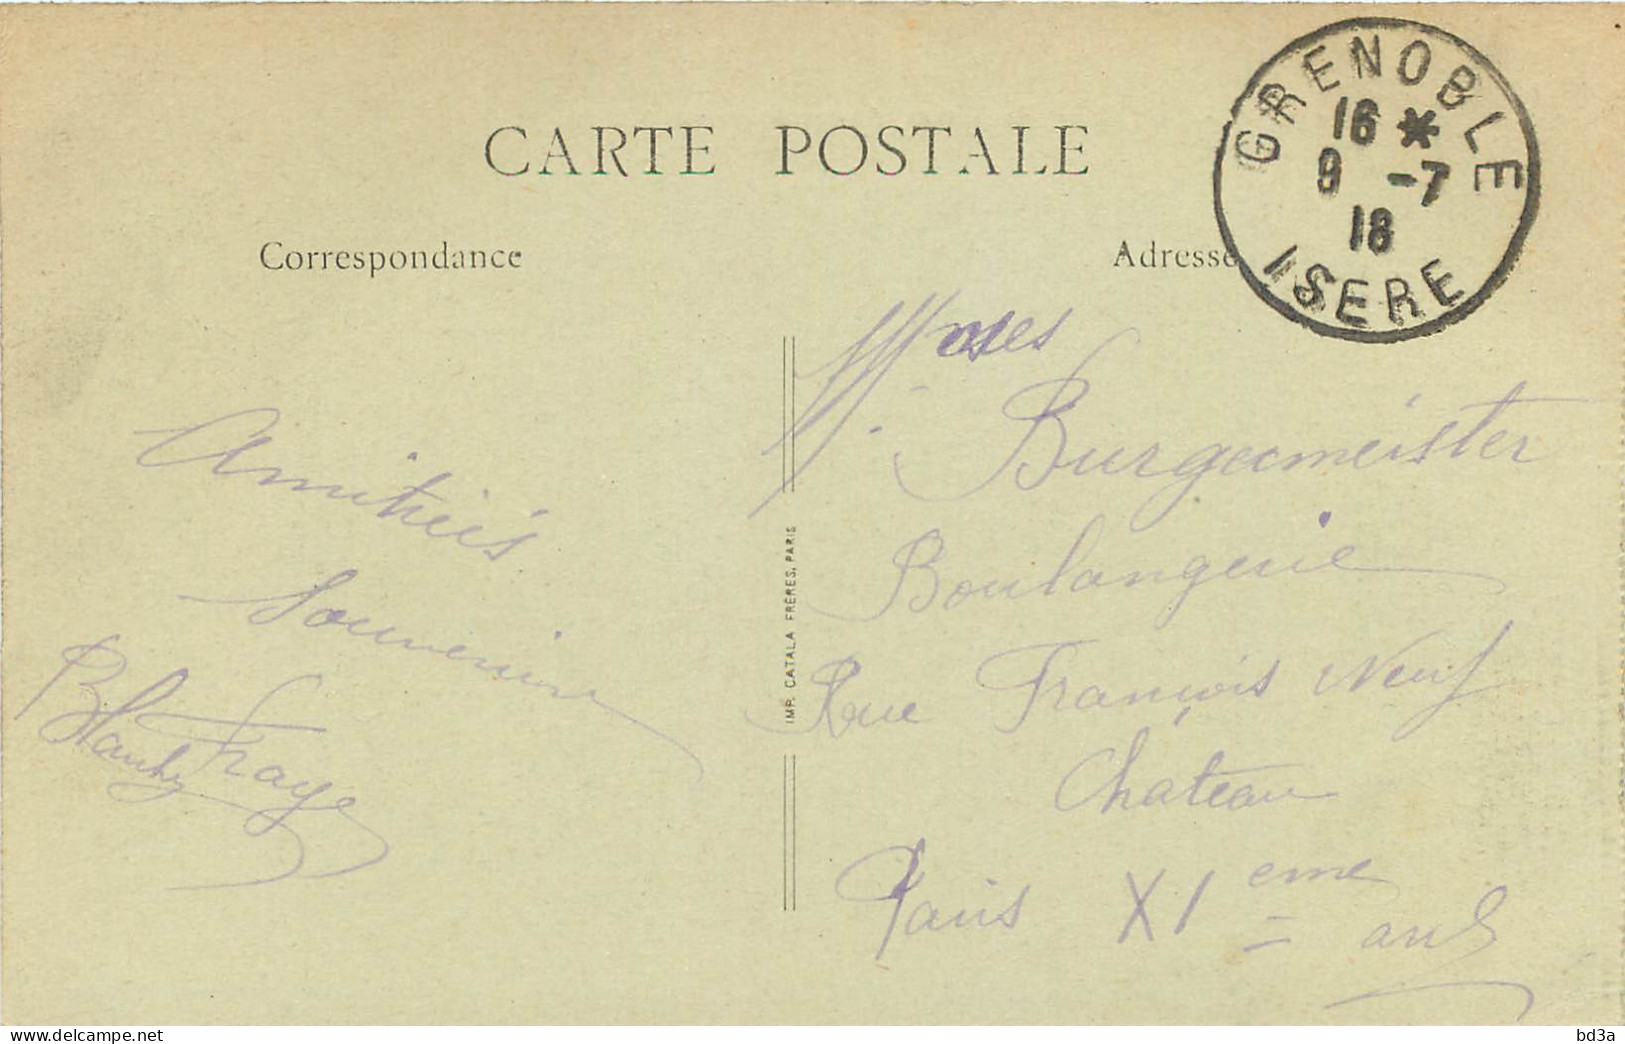 CARTE POSTALE
GRENOBLE
16 *
9 -7
18
ISERE
Correspondance
Adresse
Amitiés
Souvenir
Fraye
IMP. CATALA FRÈRES, PARIS
Burgermeister
Boulangerie
Rue François Neuf
Chateau
Paris XI eme
delcampe.net
bd3a